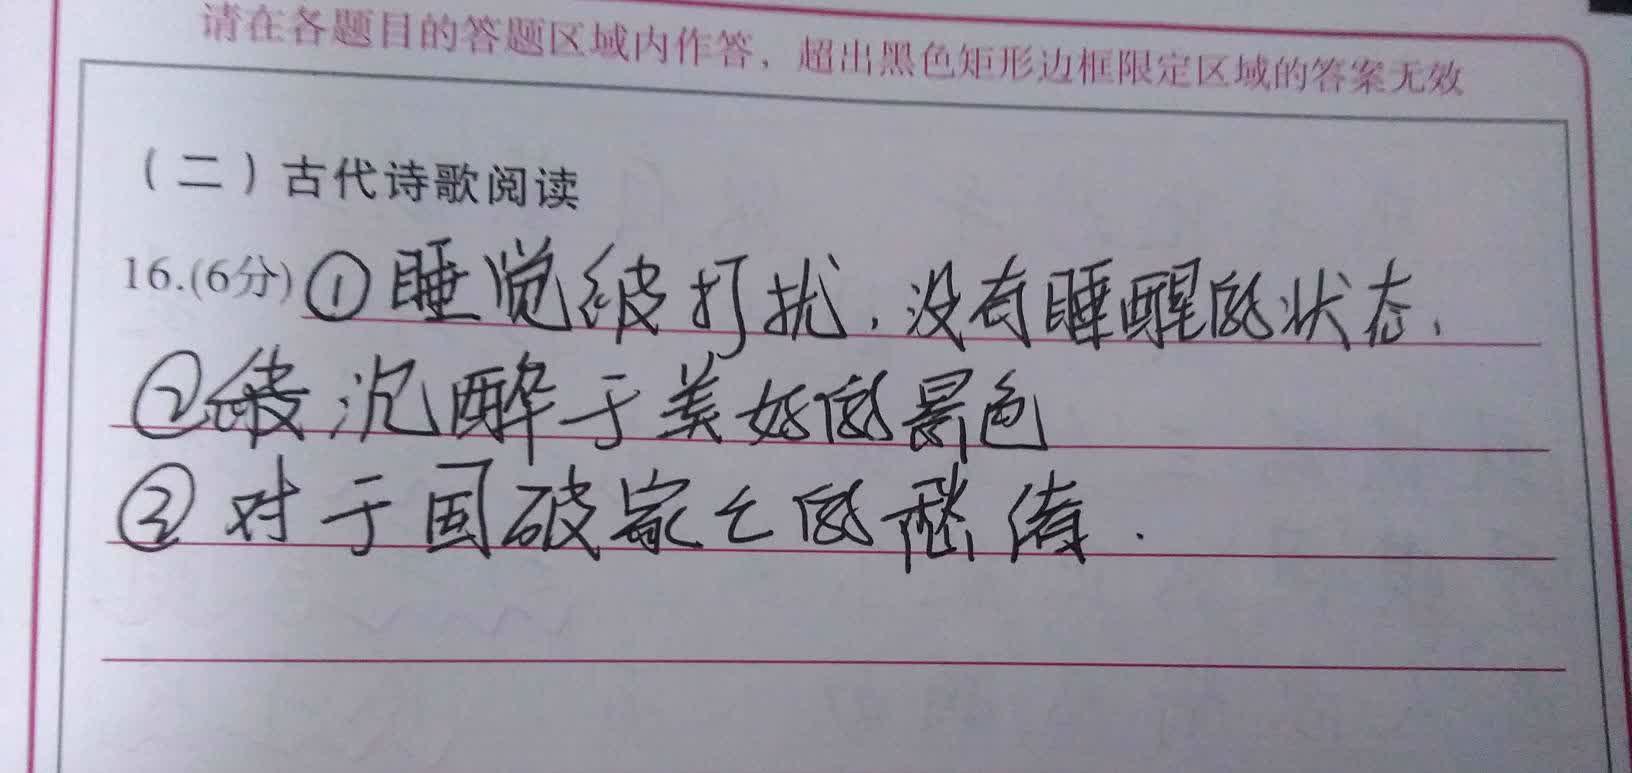 请在各题目的答题区域内作答，超出黑色矩形边框限定区域的答案无效
（二）古代诗歌阅读
16.(6分)①睡觉被打扰，没有睡醒的状态，
②被沉醉于美好的景色
③对于国破家亡的愁绪．